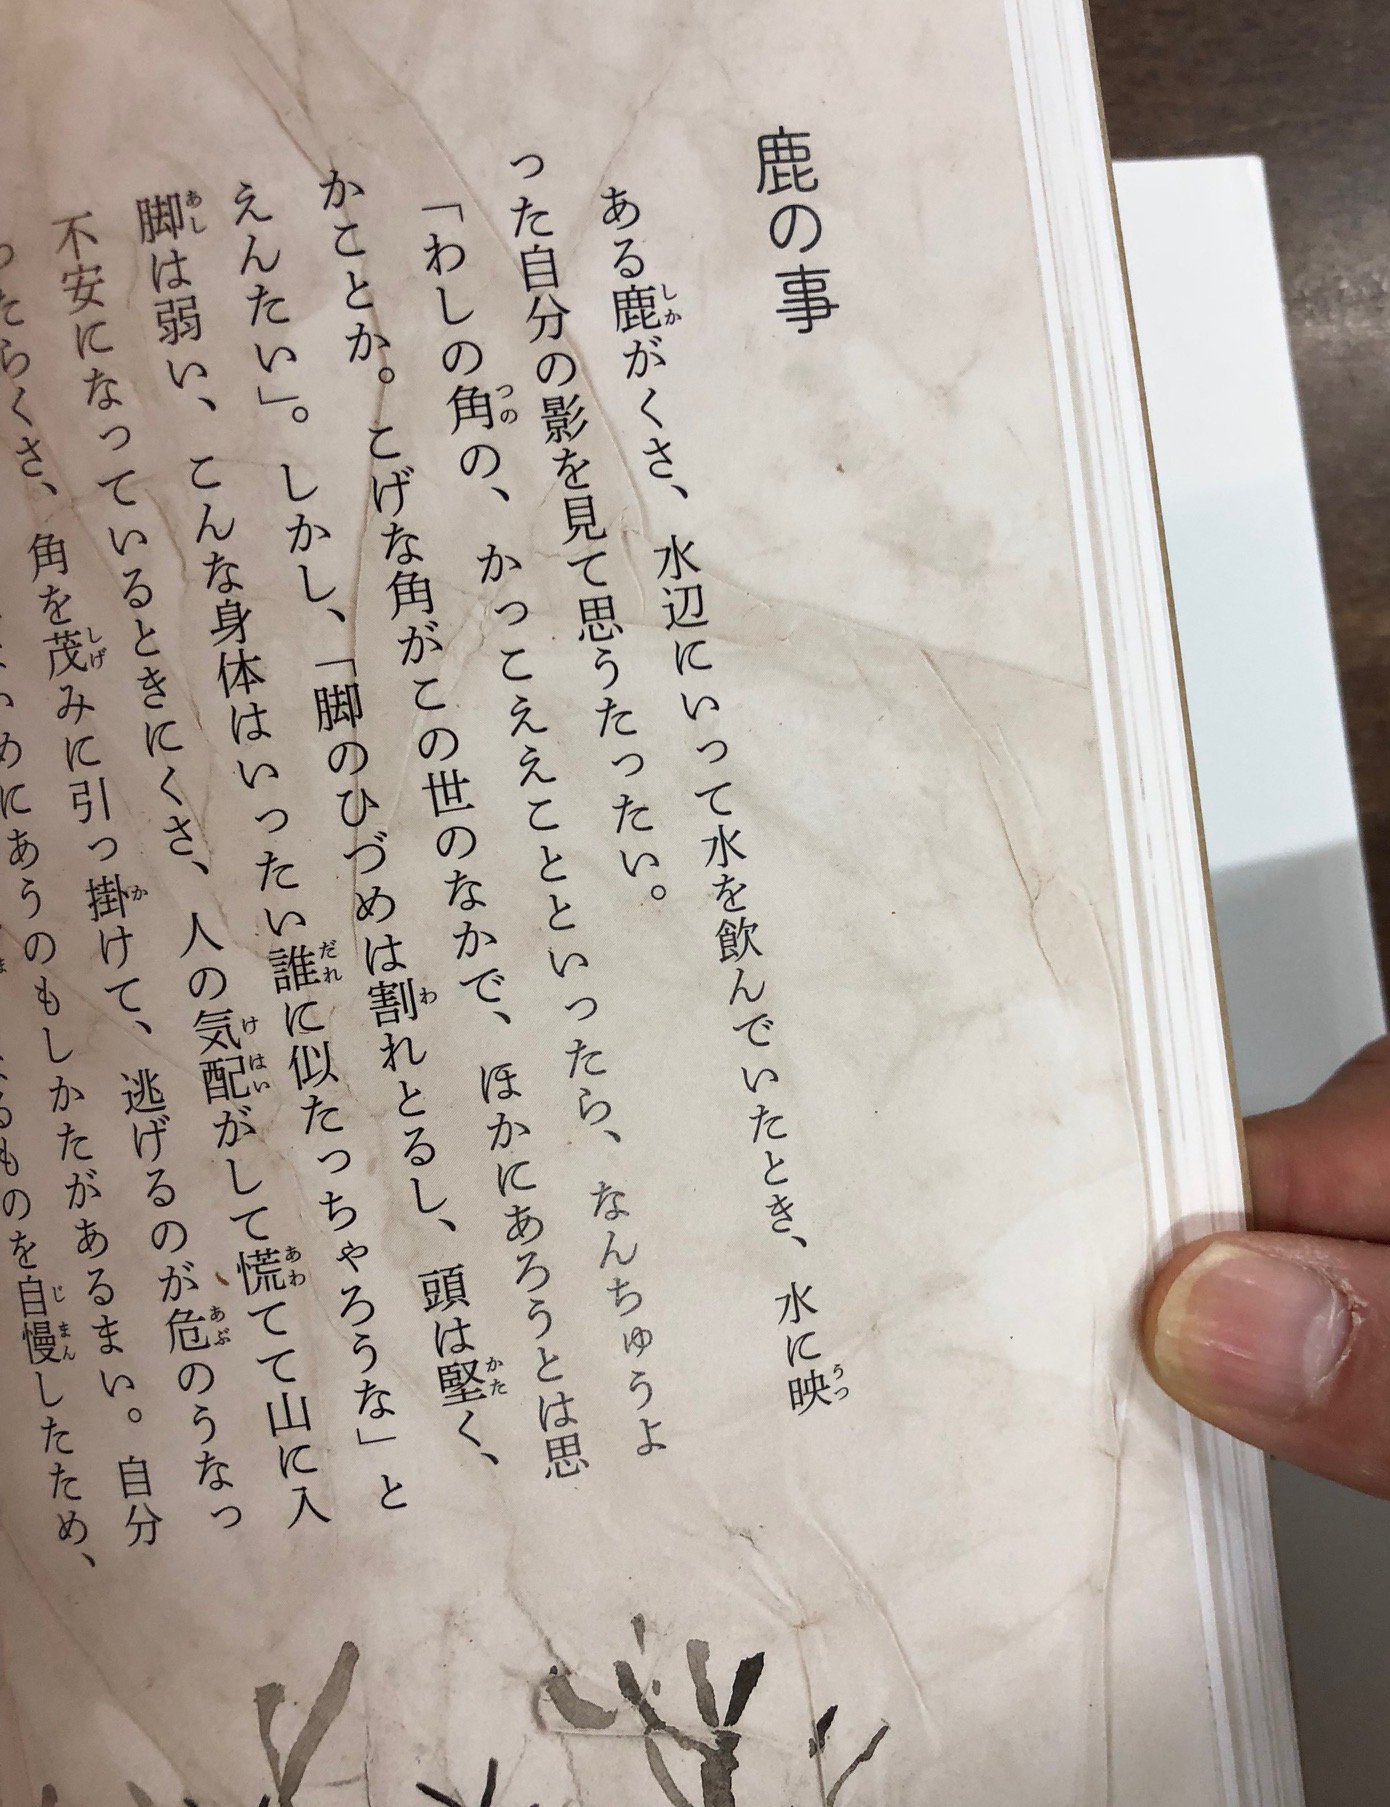 鹿の事
ある鹿がくさ、水辺にいって水を飲んでいたとき、水に映
った自分の影を見て思うたったい。
「わしの角の、かっこええことといったら、なんちゅうよ
かことか。こげな角がこの世のなかで、ほかにあろうとは思
えんたい」。しかし、「脚のひづめは割れとるし、頭は堅く、
脚は弱い、こんな身体はいったい誰に似たっちゃろうな」と
不安になっているときにくさ、人の気配がして慌てて山に入
ったらくさ、角を茂みに引っ掛けて、逃げるのが危のうなっ
めにあうのもしかたがあるまい。自分
るものを自慢したため、